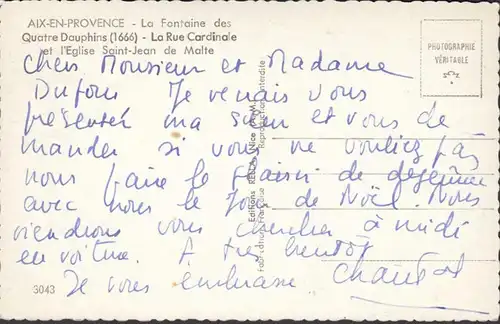 AIX-EN-PROVENCE - La Fontaine des
Quatre Dauphins (1666) - La Rue Cardinale
et l'Eglise Saint-Jean de Malte
PHOTOGRAPHIE
VÉRITABLE
Chers Monsieur et Madame
Dufour Je venais vous
présenter ma sœur et vous de
mander si vous ne vouliez pas
nous faire le plaisir de déjeuner
avec nous le Jour de Noël. Nous
viendrons vous chercher à midi
en voiture. A très bientôt
Je vous embrasse Chantal
Reproduction interdite
3043